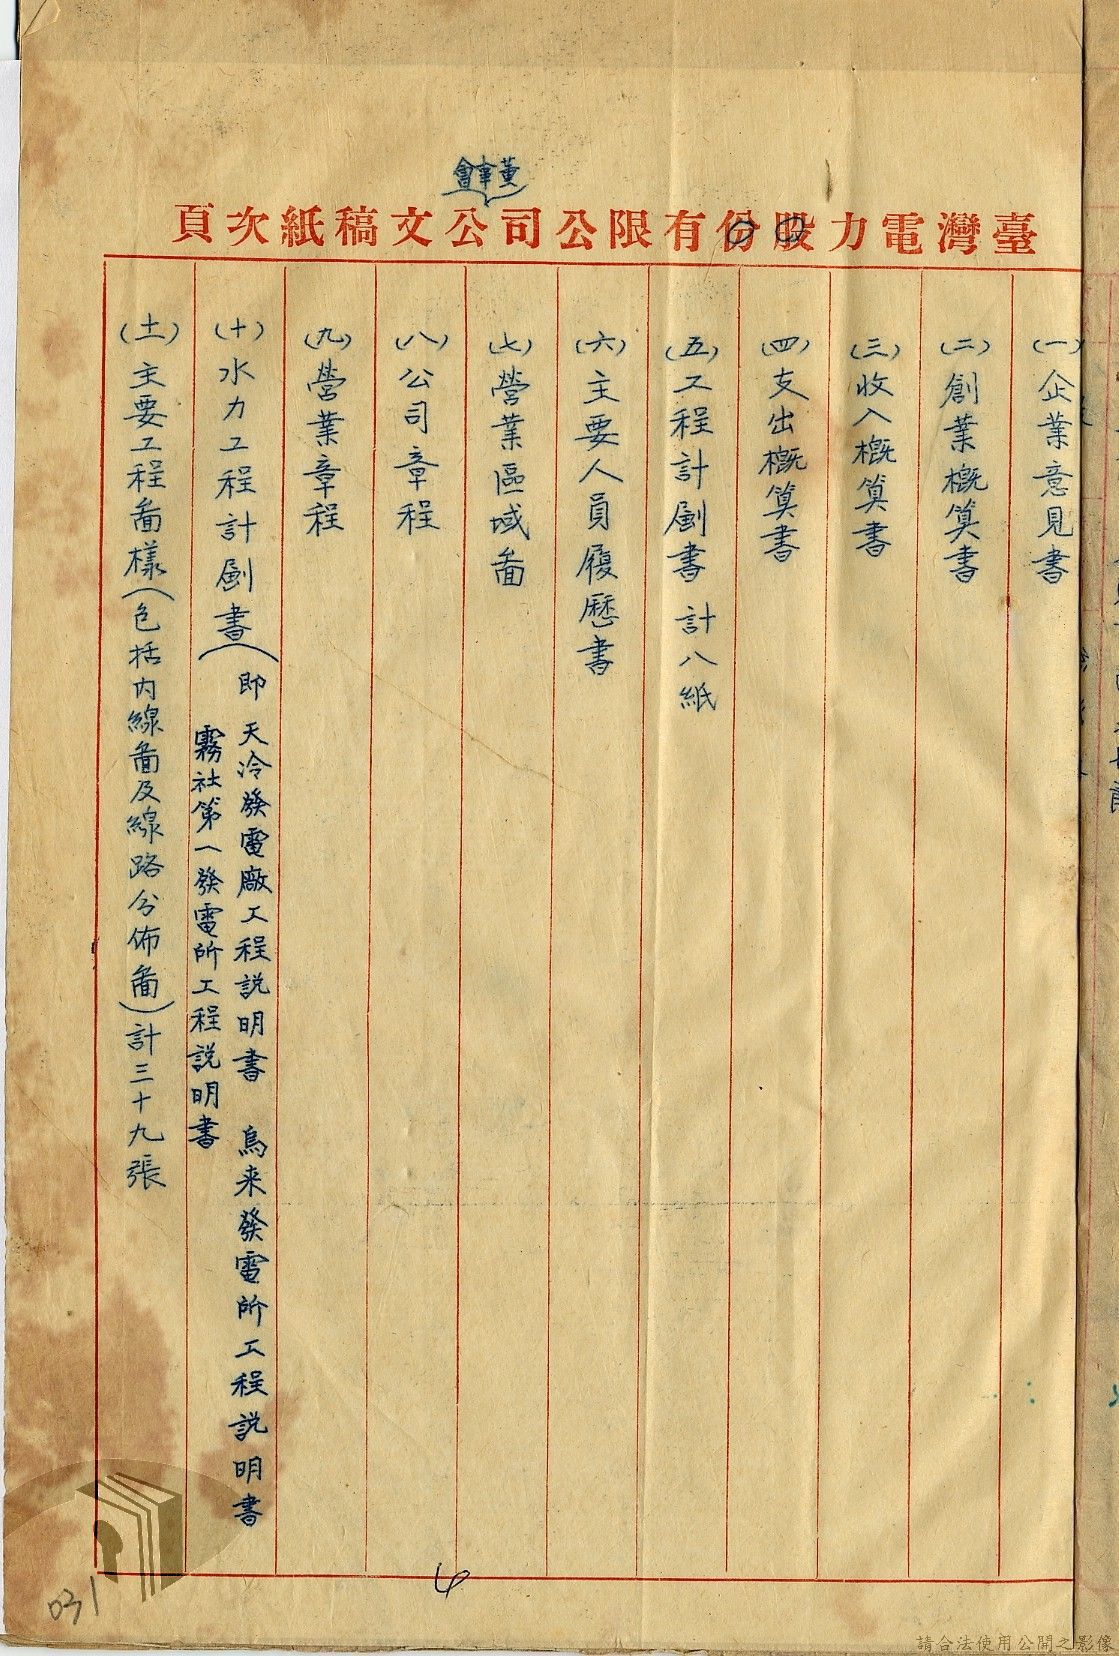 董事會
臺灣電力股份有限公司公文稿紙次頁
(一)企業意見書
(二)創業概算書
(三)收入概算書
(四)支出概算書
(五)工程計劃書 計八紙
(六)主要人員履歷書
(七)營業區域啚
(八)公司章程
(九)營業章程
(十)水力工程計劃書(即 天冷發電廠工程説明書 烏来發電所工程説明書
霧社第一發電所工程説明書
(土)主要工程啚樣(包括内線啚及線路分佈啚)計三十九張
4
031
請合法使用公開之影像